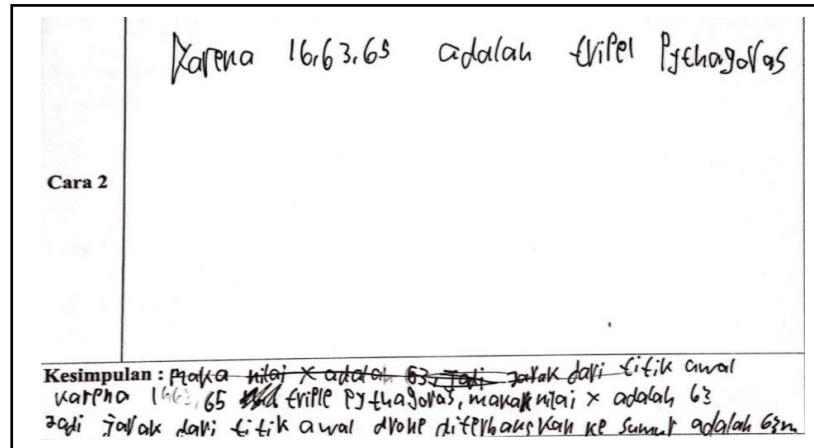 Karena 16,63,65 adalah tripel Pythagoras
Cara 2
Kesimpulan : maka nilai x adalah 63 jadi jarak dari titik awal
karena 16,63,65 triple pythagoras, maka nilai x adalah 63
Jadi jarak dari titik awal drone diterbangkan ke sumur adalah 63m